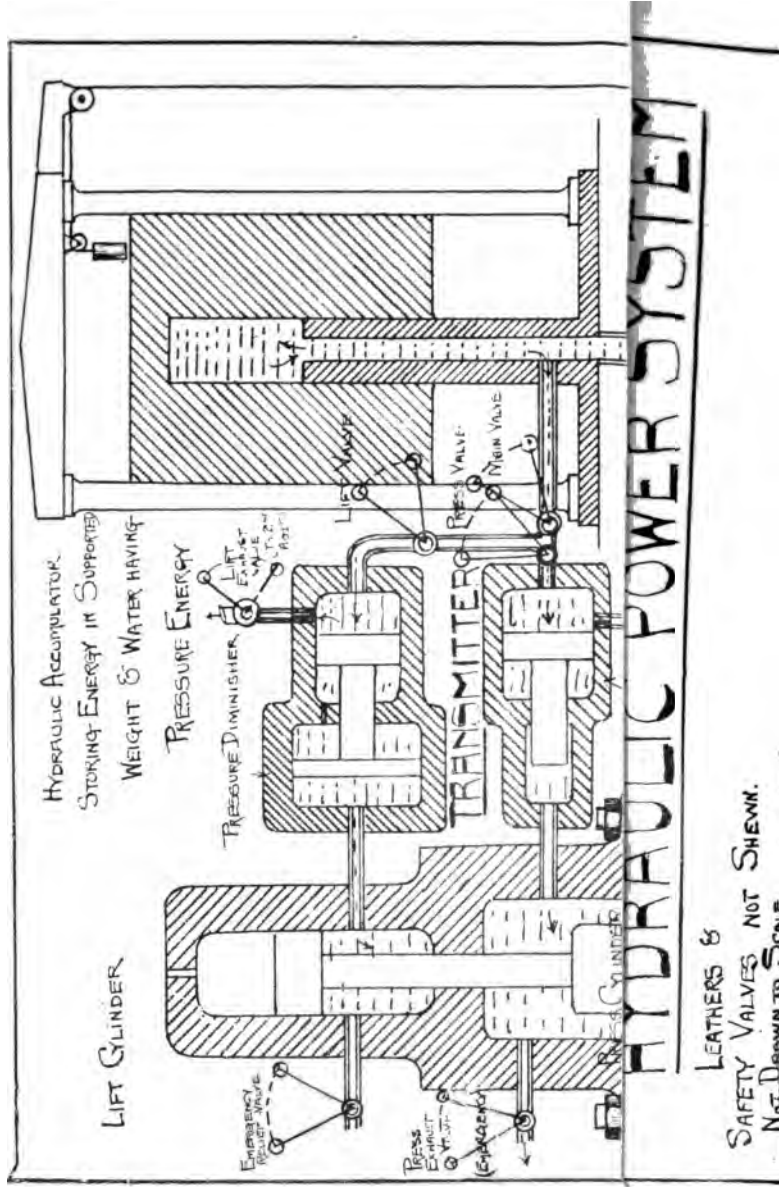 HYDRAULIC ACCUMULATOR
STORING ENERGY IN SUPPORTED
WEIGHT & WATER HAVING
PRESSURE ENERGY
LIFT
EXHAUST
VALVE
PRESSURE DIMINISHER
LIFT VALVE
PRESS VALVE
MAIN VALVE
TRANSMITTER
LIFT CYLINDER
EMERGENCY
RELIEF VALVE
PRESS
EXHAUST
VALVE
(EMERGENCY
PRESS CYLINDER
HYDRAULIC POWER SYSTEM
LEATHERS &
SAFETY VALVES NOT SHEWN.
NOT DRAWN TO SCALE